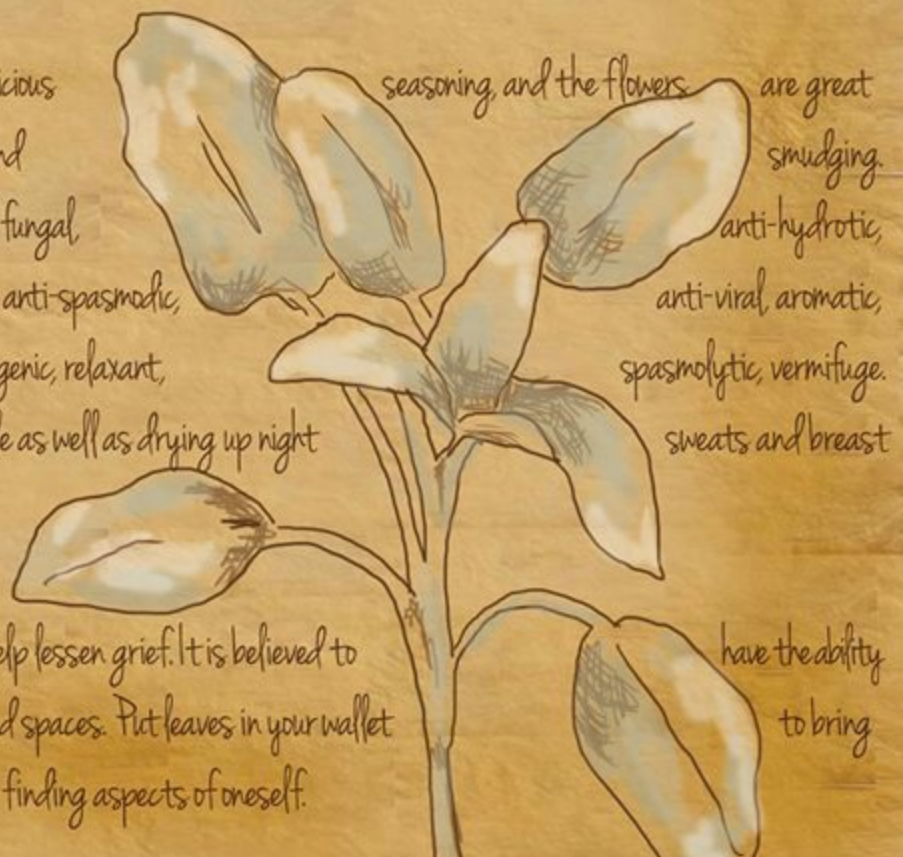 icious seasoning, and the flowers are great
nd smudging.
fungal, anti-hydrotic,
anti-spasmodic, anti-viral, aromatic,
genic, relaxant, spasmolytic, vermifuge.
e as well as drying up night sweats and breast
elp lessen grief. It is believed to have the ability
d spaces. Put leaves in your wallet to bring
finding aspects of oneself.